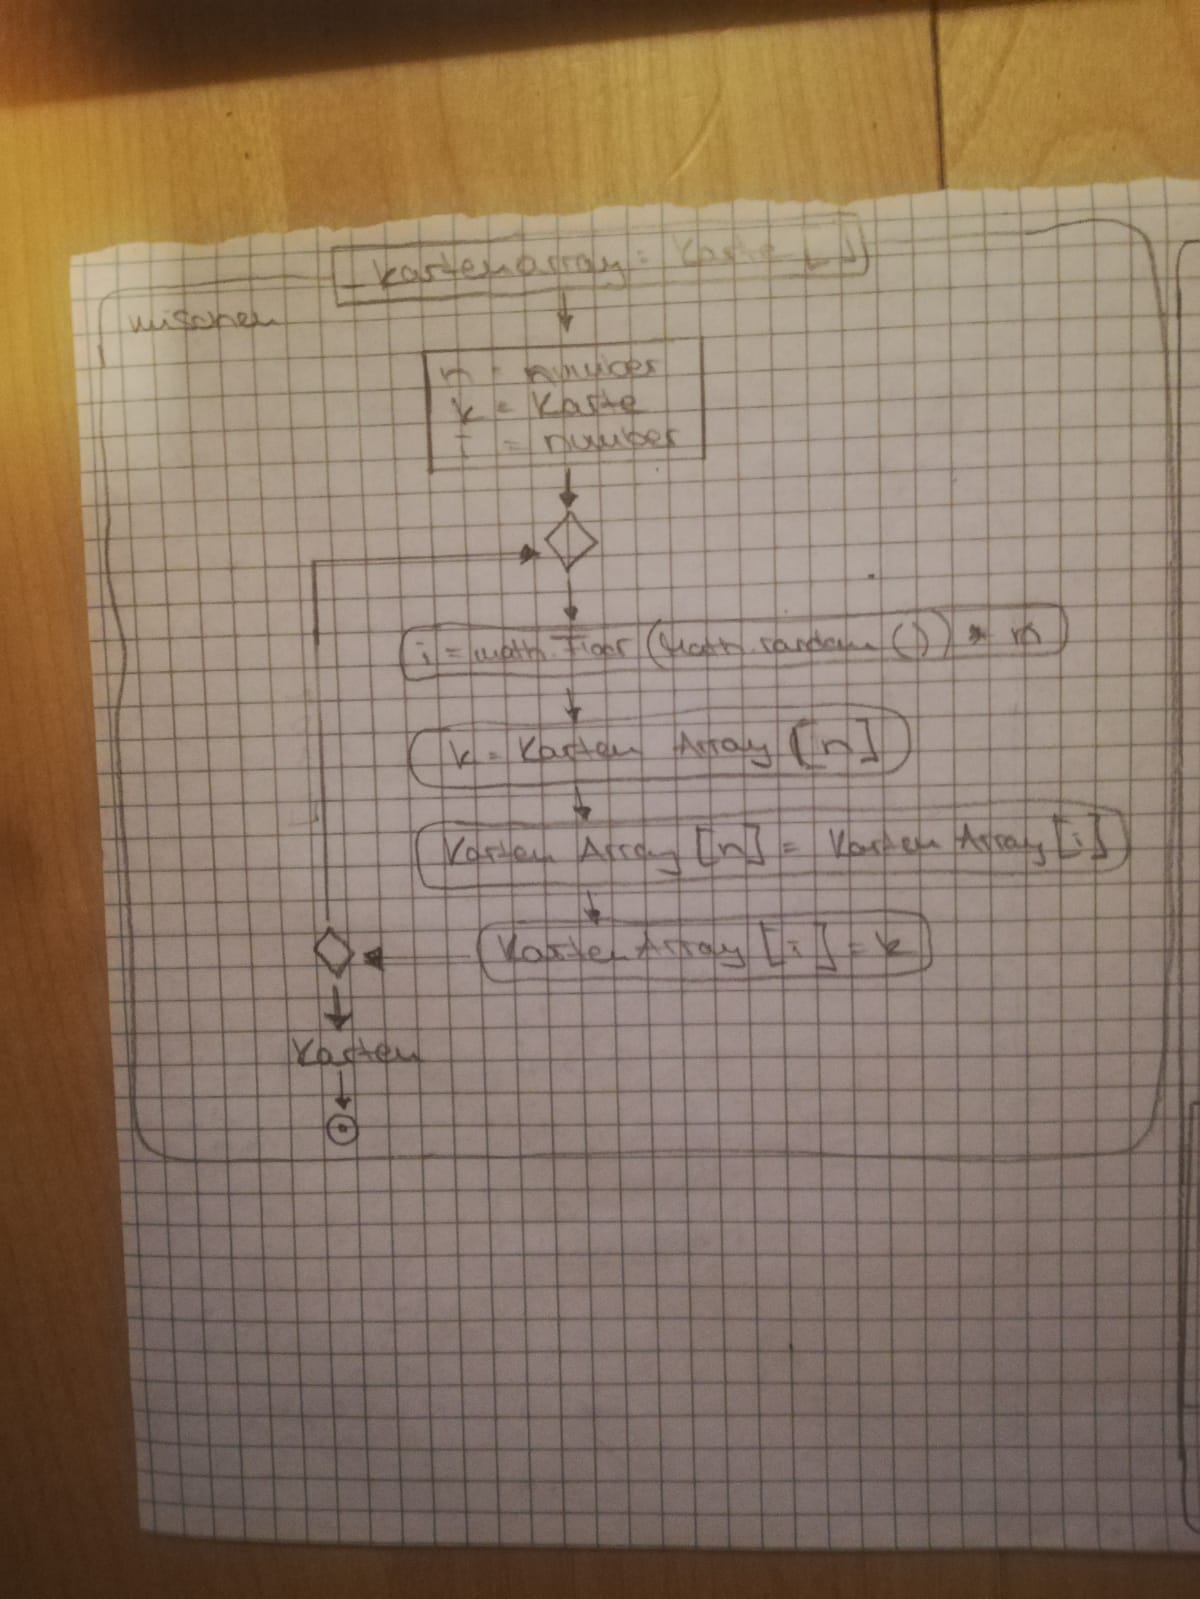 Kartenarray: Karte []
mischen
n = number
k = Karte
i = number
i = math.Floor (Math.random ()) * n
k = Karten Array [n]
Karten Array [n] = Karten Array [i]
Karten Array [i] = k
Karten